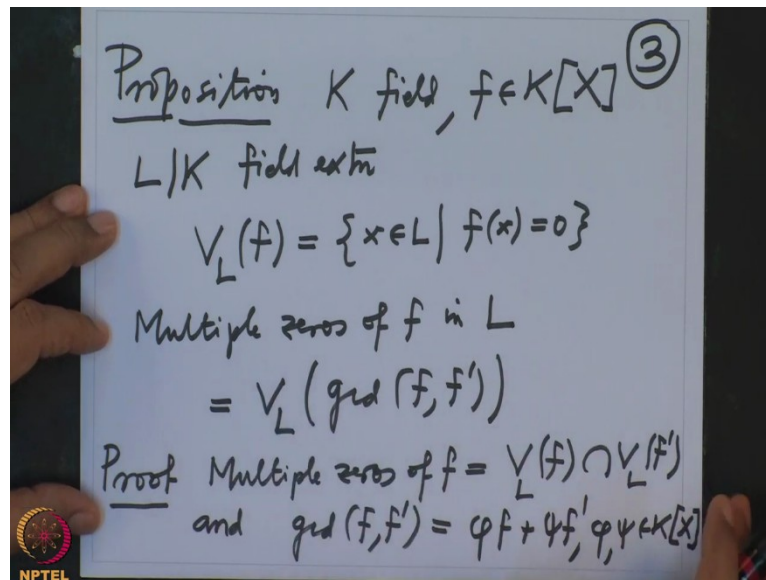 Proposition K field, f∈K[X] ③
L|K field extn
V_L(f) = {x∈L | f(x)=0}
Multiple zeros of f in L
= V_L(gcd(f,f'))
Proof Multiple zeros of f = V_L(f) ∩ V_L(f')
and gcd(f,f') = φf + ψf', φ,ψ∈K[X]
NPTEL